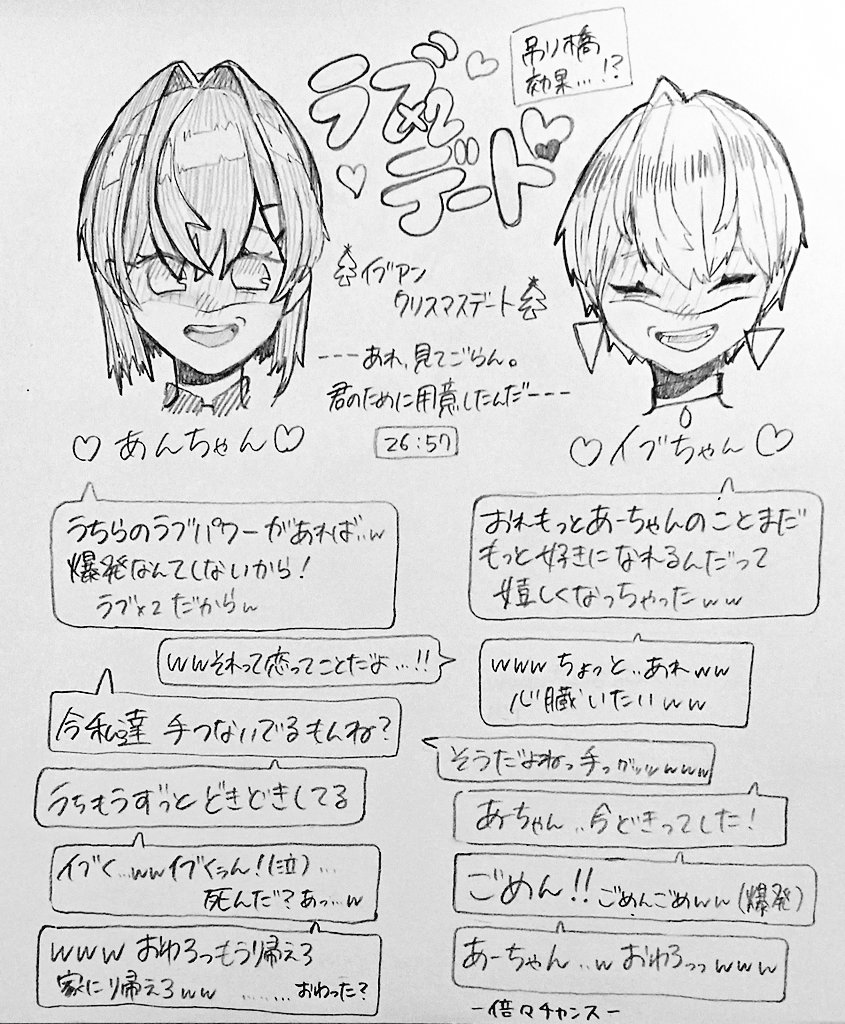 吊り橋
効果…!?
ラブ×2
デート
イブアン
クリスマスデート
---あれ、見てごらん。
君のために用意したんだ---
26:57
♡あんちゃん♡
♡イブちゃん♡
うちらのラブパワーがあれば…w
爆発なんてしないから!
ラブ×2だからw
おれもっとあーちゃんのことまだ
もっと好きになれるんだって
嬉しくなっちゃったww
wwそれって恋ってことだよ…!!
wwwちょっと‥あれww
心臓いたいww
今私達 手つないでるもんね?
そうだよねっ手っガッッwww
うちもうずっとどきどきしてる
あーちゃん‥今どきってした!
イブく…wwイブくぅん!(泣)…
死んだ?あっ…w
ごめん!!ごめんごめww(爆発)
wwwおわろっもう帰えろ
家に帰えろww ………おわった?
あーちゃん‥wおわろっっwww
-倍々チャンス-